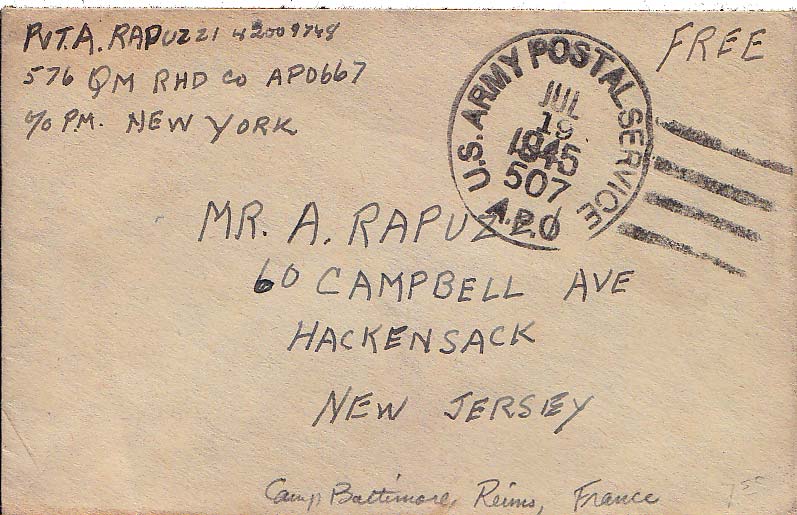 PVT. A. RAPUZZI 42009748
576 QM RHD CO APO667
c/o P.M. NEW YORK
FREE
U.S. ARMY POSTAL SERVICE
JUL
19
1945
507
A.P.O
MR. A. RAPUZZI
60 CAMPBELL AVE
HACKENSACK
NEW JERSEY
Camp Baltimore, Reims, France